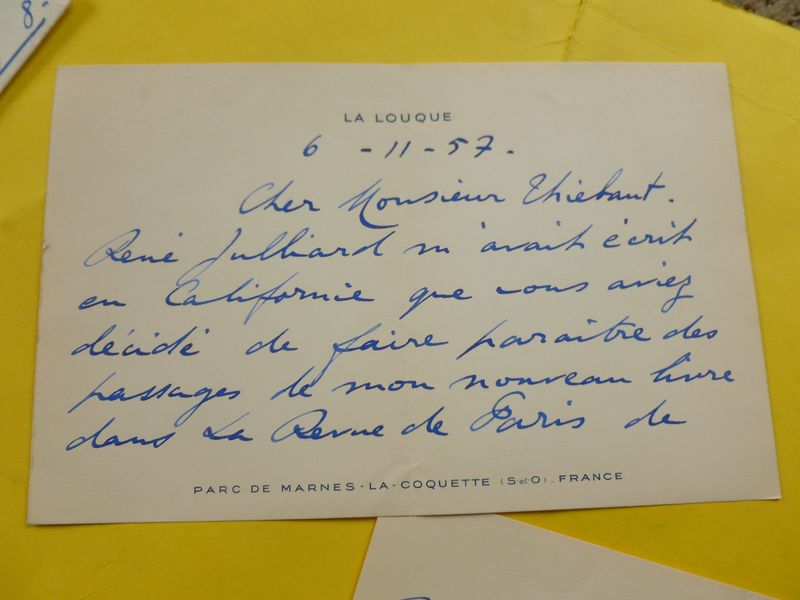 8.
LA LOUQUE
6 - 11 - 57.
Cher Monsieur Thiébaut.
René Julliard m'avait écrit
en Californie que vous aviez
décidé de faire paraître des
passages de mon nouveau livre
dans La Revue de Paris de
PARC DE MARNES-LA-COQUETTE (S-et-O)_FRANCE